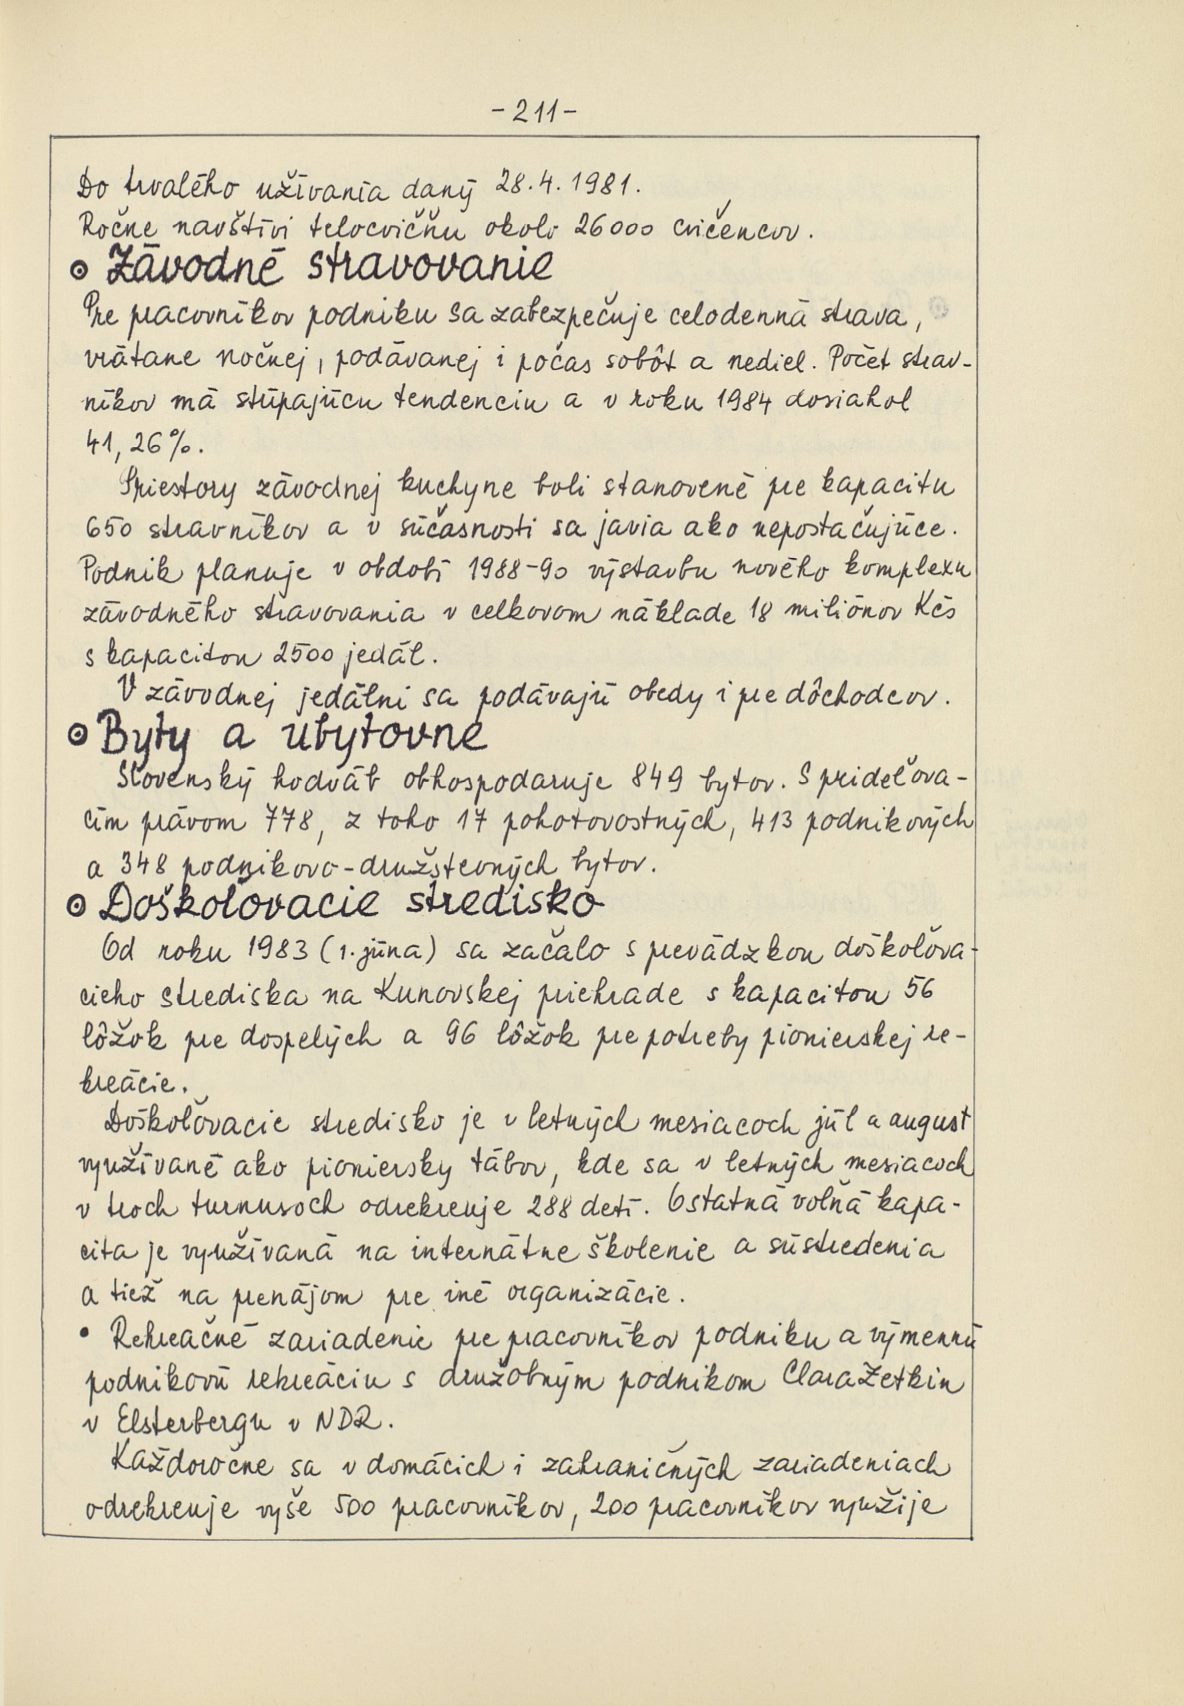 -211-
Do trvalého užívania daný 28.4.1981.
Ročne navštívi telocvičňu okolo 26000 cvičencov.
⊙ Závodné stravovanie
Pre pracovníkov podniku sa zabezpečuje celodenná strava,
vrátane nočnej, podávanej i počas sobôt a nediel. Počet strav-
níkov má stúpajúcu tendenciu a v roku 1984 dosiahol
41,26%.
Priestory závodnej kuchyne boli stanovené pre kapacitu
650 stravníkov a v súčasnosti sa javia ako nepostačujúce.
Podnik planuje v období 1988-90 výstavbu nového komplexu
závodného stravovania v celkovom náklade 18 miliónov Kčs
s kapacitou 2500 jedál.
V závodnej jedálni sa podávajú obedy i pre dôchodcov.
⊙ Byty a ubytovne
Slovenský hodváb obhospodaruje 849 bytov. S prideľova-
cím právom 778, z toho 17 pohotovostných, 413 podnikových
a 348 podnikovo-družstevných bytov.
⊙ Doškoľovacie stredisko
Od roku 1983 (1. júna) sa začalo s prevádzkou doškoľova-
cieho strediska na Kunovskej priehrade s kapacitou 56
lôžok pre dospelých a 96 lôžok pre potreby pionierskej re-
kreácie.
Doškoľovacie stredisko je v letných mesiacoch júl a august
využívané ako pioniersky tábor, kde sa v letných mesiacoch
v troch turnusoch odrekreuje 288 detí. Ostatná voľná kapa-
cita je využívaná na internátne školenie a sústredenia
a tiež na prenájom pre iné organizácie.
• Rekreačné zariadenie pre pracovníkov podniku a výmennú
podnikovú rekreáciu s družobným podnikom Clara Zetkin
v Elsterbergu v NDR.
Každoročne sa v domácich i zahraničných zariadeniach
odrekreuje vyše 500 pracovníkov, 200 pracovníkov využije